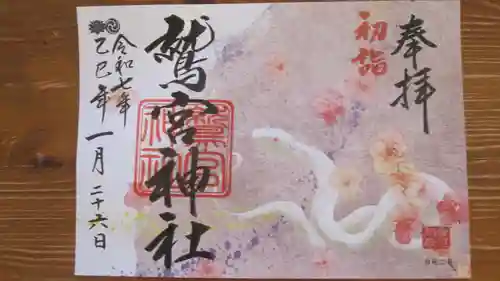 奉拝
初詣
鷲宮神社
令和七年
乙巳年
一月二十六日